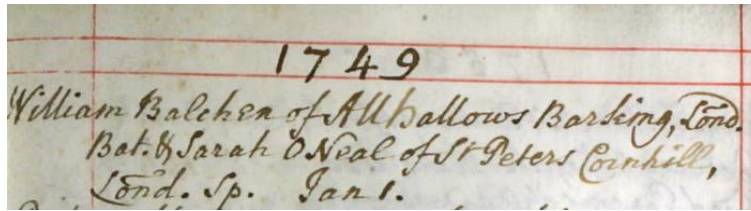 1749
William Balchen of Allhallows Barking, Lond.
Bat. & Sarah ONeal of St Peters Cornhill,
Lond. Sp. Jan 1.